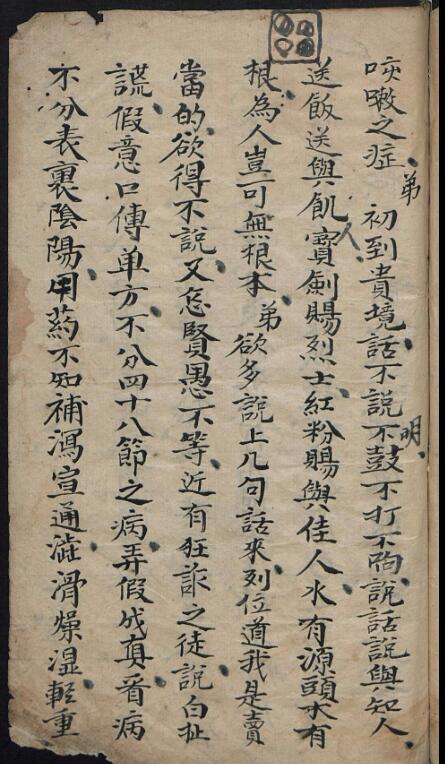 咳嗽之症、弟初到貴境、話不說不明、鼓不打不响、說話說與知人、
送飯送與飢人、寶劍賜烈士、紅粉賜與佳人、水有源頭木有
根、為人豈可無根本、弟欲多說上几句話來、列位道我是賣
當的、欲得不說、又怎賢愚不等、近有狂詐之徒說白扯
謊、假意口傳单方、不分四十八節之病、弄假成真、看病
不分表裏陰陽、用药不知補瀉宣通、澁滑燥湿軽重